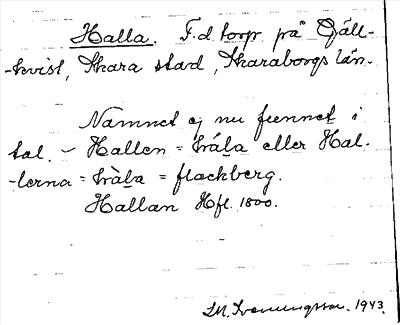 Halla. F.d. torp på Gäll-
-kvist, Skara stad, Skaraborgs län.
Namnet ej nu funnet i
tal. - Hallen = hála eller Hal-
-lerna = hàla = flackberg.
Hallan Hfl. 1800.
1943.